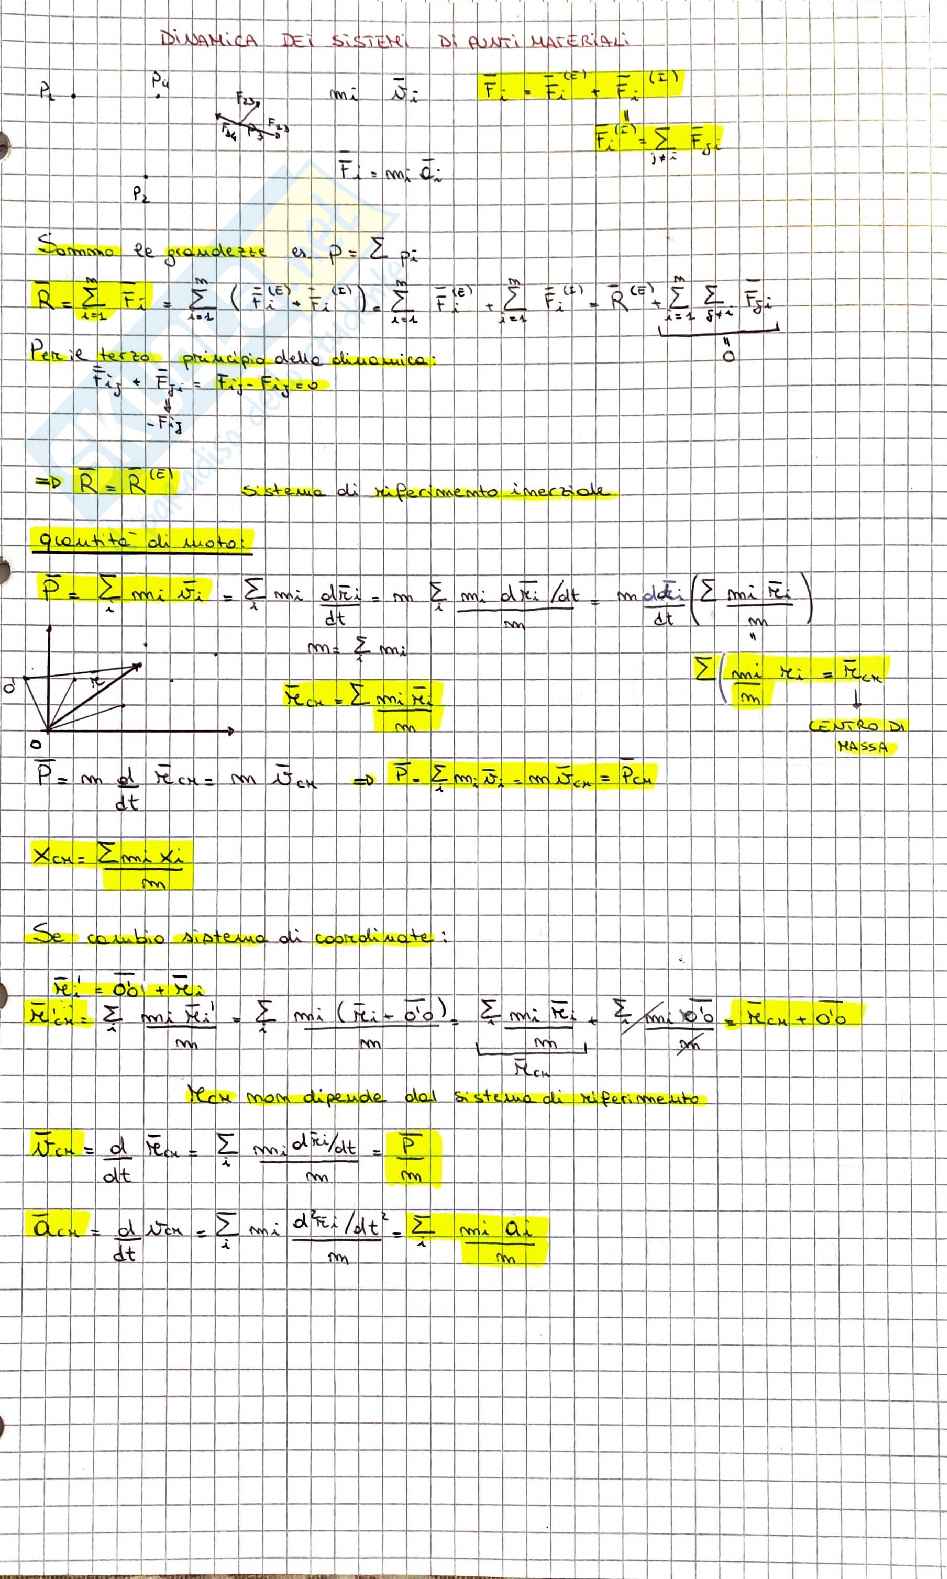 DINAMICA DEI SISTEMI DI PUNTI MATERIALI
P₁ P₄ F₂₃ P₃ P₂ mᵢ v̄ᵢ F̄ᵢ = F̄ᵢ⁽ᴱ⁾ + F̄ᵢ⁽ᴵ⁾
F̄ᵢ⁽ᴵ⁾ = Σ_{j≠i} F̄ⱼᵢ
F̄ᵢ = mᵢ āᵢ
Sommo le grandezze es. P = Σ pᵢ
R̄ = Σ_{i=1}^{n} F̄ᵢ = Σ_{i=1}^{n} (F̄ᵢ⁽ᴱ⁾ + F̄ᵢ⁽ᴵ⁾) = Σ_{i=1}^{n} F̄ᵢ⁽ᴱ⁾ + Σ_{i=1}^{n} F̄ᵢ⁽ᴵ⁾ = R̄⁽ᴱ⁾ + Σ_{i=1}^{n} Σ_{j≠i} F̄ⱼᵢ
= 0
Per il terzo principio della dinamica:
F̄ᵢⱼ + F̄ⱼᵢ = Fᵢⱼ - Fᵢⱼ = 0
↓
-Fᵢⱼ
⇒ R̄ = R̄⁽ᴱ⁾ sistema di riferimento inerziale
quantità di moto:
P̄ = Σᵢ mᵢ v̄ᵢ = Σᵢ mᵢ dr̄ᵢ/dt = m Σᵢ mᵢ dr̄ᵢ/dt / m = m d/dt (Σ mᵢ r̄ᵢ / m)
m = Σᵢ mᵢ
O' r O
r̄_CM = Σ mᵢ r̄ᵢ / m
Σ (mᵢ / m rᵢ = r̄_CM
↓
CENTRO DI MASSA
P̄ = m d/dt r̄_CM = m v̄_CM ⇒ P̄ = Σᵢ mᵢ v̄ᵢ = m v̄_CM = P̄_CM
X_CM = Σ mᵢ xᵢ / m
Se cambio sistema di coordinate:
r̄ᵢ' = O̅'O̅ + r̄ᵢ
r̄'_CM = Σᵢ mᵢ r̄ᵢ' / m = Σᵢ mᵢ (r̄ᵢ - O̅'O̅) / m = Σᵢ mᵢ r̄ᵢ / m + Σᵢ mᵢ O̅'O̅ / m = r̄_CM + O̅'O̅
r̄_CM
r_CM non dipende dal sistema di riferimento
v̄_CM = d/dt r̄_CM = Σᵢ mᵢ dr̄ᵢ/dt / m = P̄ / m
ā_CM = d/dt v_CM = Σᵢ mᵢ d²r̄ᵢ/dt² / m = Σᵢ mᵢ aᵢ / m